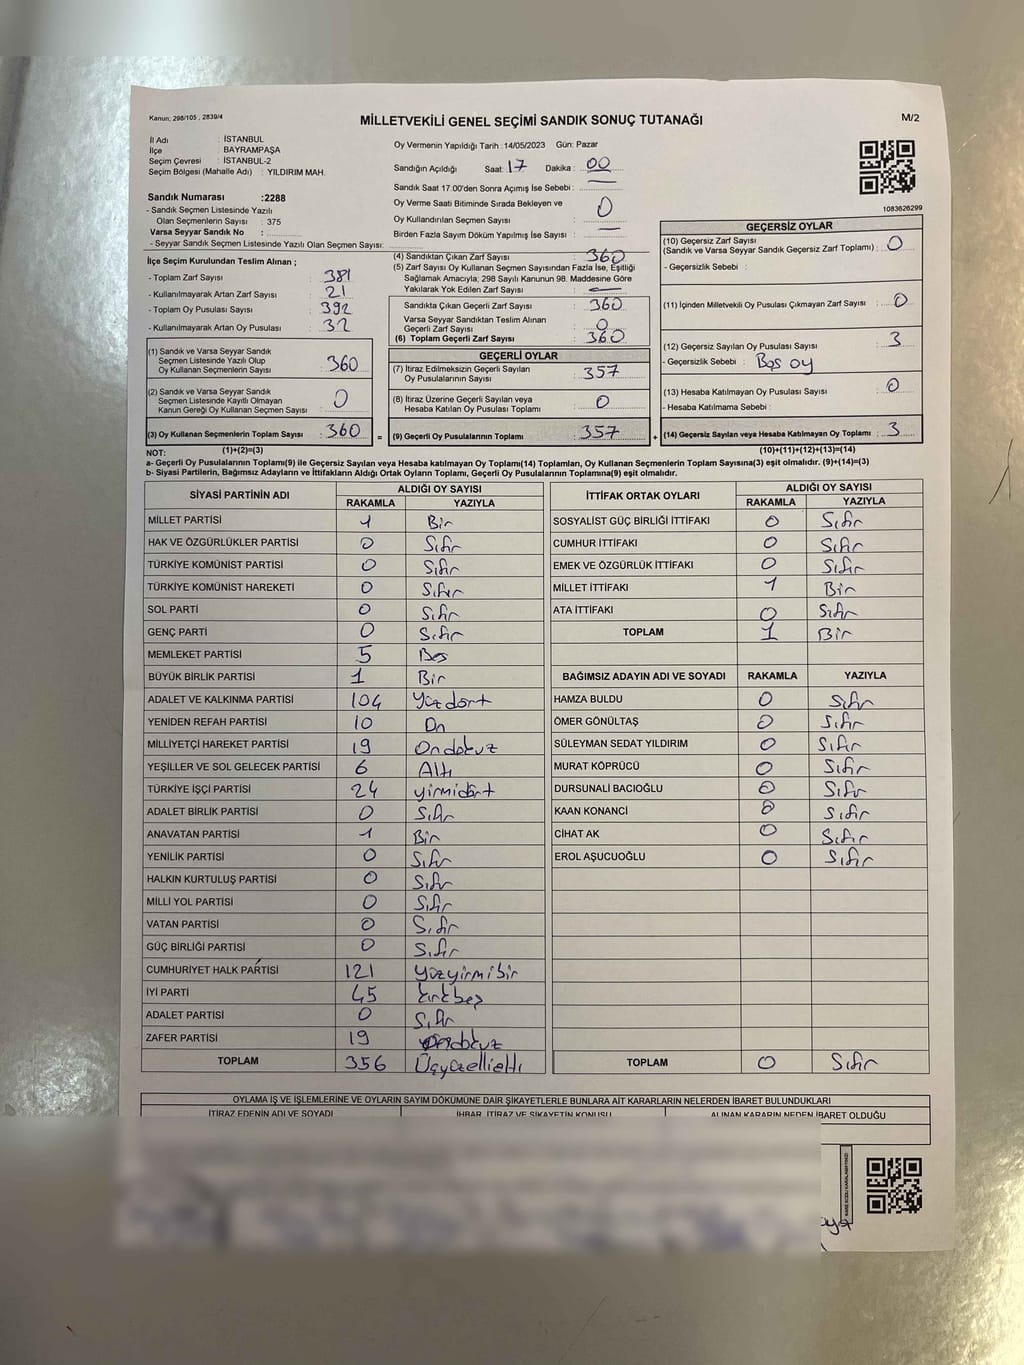 Kanun; 298/105 , 2839/4
MİLLETVEKİLİ GENEL SEÇİMİ SANDIK SONUÇ TUTANAĞI
M/2
İl Adı : İSTANBUL
İlçe : BAYRAMPAŞA
Seçim Çevresi : İSTANBUL-2
Seçim Bölgesi (Mahalle Adı) : YILDIRIM MAH.
Sandık Numarası :2288
- Sandık Seçmen Listesinde Yazılı
Olan Seçmenlerin Sayısı : 375
Varsa Seyyar Sandık No :
- Seyyar Sandık Seçmen Listesinde Yazılı Olan Seçmen Sayısı:
Oy Vermenin Yapıldığı Tarih :14/05/2023 Gün: Pazar
Sandığın Açıldığı Saat: 17 Dakika : 00
Sandık Saat 17.00'den Sonra Açımış İse Sebebi : —
Oy Verme Saati Bitiminde Sırada Bekleyen ve
Oy Kullandırılan Seçmen Sayısı : 0
Birden Fazla Sayım Döküm Yapılmış İse Sayısı : —
1083626299
İlçe Seçim Kurulundan Teslim Alınan ;
- Toplam Zarf Sayısı : 381
- Kullanılmayarak Artan Zarf Sayısı : 21
- Toplam Oy Pusulası Sayısı : 392
- Kullanılmayarak Artan Oy Pusulası : 32
(1) Sandık ve Varsa Seyyar Sandık
Seçmen Listesinde Yazılı Olup
Oy Kullanan Seçmenlerin Sayısı : 360
(2) Sandık ve Varsa Seyyar Sandık
Seçmen Listesinde Kayıtlı Olmayan
Kanun Gereği Oy Kullanan Seçmen Sayısı : 0
(3) Oy Kullanan Seçmenlerin Toplam Sayısı : 360
(4) Sandıktan Çıkan Zarf Sayısı : 360
(5) Zarf Sayısı Oy Kullanan Seçmen Sayısından Fazla İse, Eşitliği
Sağlamak Amacıyla, 298 Sayılı Kanunun 98. Maddesine Göre
Yakılarak Yok Edilen Zarf Sayısı : —
Sandıkta Çıkan Geçerli Zarf Sayısı : 360
Varsa Seyyar Sandıktan Teslim Alınan
Geçerli Zarf Sayısı : 0
(6) Toplam Geçerli Zarf Sayısı : 360
GEÇERLİ OYLAR
(7) İtiraz Edilmeksizin Geçerli Sayılan
Oy Pusulalarının Sayısı : 357
(8) İtiraz Üzerine Geçerli Sayılan veya
Hesaba Katılan Oy Pusulası Toplamı : 0
= (9) Geçerli Oy Pusulalarının Toplamı : 357
GEÇERSİZ OYLAR
(10) Geçersiz Zarf Sayısı
(Sandık ve Varsa Seyyar Sandık Geçersiz Zarf Toplamı) : 0
- Geçersizlik Sebebi :
(11) İçinden Milletvekili Oy Pusulası Çıkmayan Zarf Sayısı : 0
(12) Geçersiz Sayılan Oy Pusulası Sayısı : 3
- Geçersizlik Sebebi : Boş oy
(13) Hesaba Katılmayan Oy Pusulası Sayısı : 0
- Hesaba Katılmama Sebebi :
+ (14) Geçersiz Sayılan veya Hesaba Katılmayan Oy Toplamı : 3
NOT: (1)+(2)=(3) (10)+(11)+(12)+(13)=(14)
a- Geçerli Oy Pusulalarının Toplamı(9) ile Geçersiz Sayılan veya Hesaba katılmayan Oy Toplamı(14) Toplamları, Oy Kullanan Seçmenlerin Toplam Sayısına(3) eşit olmalıdır. (9)+(14)=(3)
b- Siyasi Partilerin, Bağımsız Adayların ve İttifakların Aldığı Ortak Oyların Toplamı, Geçerli Oy Pusulalarının Toplamına(9) eşit olmalıdır.
SİYASİ PARTİNİN ADI ALDIĞI OY SAYISI
RAKAMLA YAZIYLA
MİLLET PARTİSİ 1 Bir
HAK VE ÖZGÜRLÜKLER PARTİSİ 0 Sıfır
TÜRKİYE KOMÜNİST PARTİSİ 0 Sıfır
TÜRKİYE KOMÜNİST HAREKETİ 0 Sıfır
SOL PARTİ 0 Sıfır
GENÇ PARTİ 0 Sıfır
MEMLEKET PARTİSİ 5 Beş
BÜYÜK BİRLİK PARTİSİ 1 Bir
ADALET VE KALKINMA PARTİSİ 104 Yüzdört
YENİDEN REFAH PARTİSİ 10 On
MİLLİYETÇİ HAREKET PARTİSİ 19 Ondokuz
YEŞİLLER VE SOL GELECEK PARTİSİ 6 Altı
TÜRKİYE İŞÇİ PARTİSİ 24 yirmidört
ADALET BİRLİK PARTİSİ 0 Sıfır
ANAVATAN PARTİSİ 1 Bir
YENİLİK PARTİSİ 0 Sıfır
HALKIN KURTULUŞ PARTİSİ 0 Sıfır
MİLLİ YOL PARTİSİ 0 Sıfır
VATAN PARTİSİ 0 Sıfır
GÜÇ BİRLİĞİ PARTİSİ 0 Sıfır
CUMHURİYET HALK PARTİSİ 121 Yüzyirmibir
İYİ PARTİ 45 kırkbeş
ADALET PARTİSİ 0 Sıfır
ZAFER PARTİSİ 19 ondokuz
TOPLAM 356 Üçyüzellialtı
İTTİFAK ORTAK OYLARI ALDIĞI OY SAYISI
RAKAMLA YAZIYLA
SOSYALİST GÜÇ BİRLİĞİ İTTİFAKI 0 Sıfır
CUMHUR İTTİFAKI 0 Sıfır
EMEK VE ÖZGÜRLÜK İTTİFAKI 0 Sıfır
MİLLET İTTİFAKI 1 Bir
ATA İTTİFAKI 0 Sıfır
TOPLAM 1 Bir
BAĞIMSIZ ADAYIN ADI VE SOYADI RAKAMLA YAZIYLA
HAMZA BULDU 0 Sıfır
ÖMER GÖNÜLTAŞ 0 Sıfır
SÜLEYMAN SEDAT YILDIRIM 0 Sıfır
MURAT KÖPRÜCÜ 0 Sıfır
DURSUNALİ BACIOĞLU 0 Sıfır
KAAN KONANCİ 0 Sıfır
CİHAT AK 0 Sıfır
EROL AŞUCUOĞLU 0 Sıfır
TOPLAM 0 Sıfır
OYLAMA İŞ VE İŞLEMLERİNE VE OYLARIN SAYIM DÖKÜMÜNE DAİR ŞİKAYETLERLE BUNLARA AİT KARARLARIN NELERDEN İBARET BULUNDUKLARI
İTİRAZ EDENİN ADI VE SOYADI İHBAR, İTİRAZ VE ŞİKAYETİN KONUSU ALINAN KARARIN NEDEN İBARET OLDUĞU